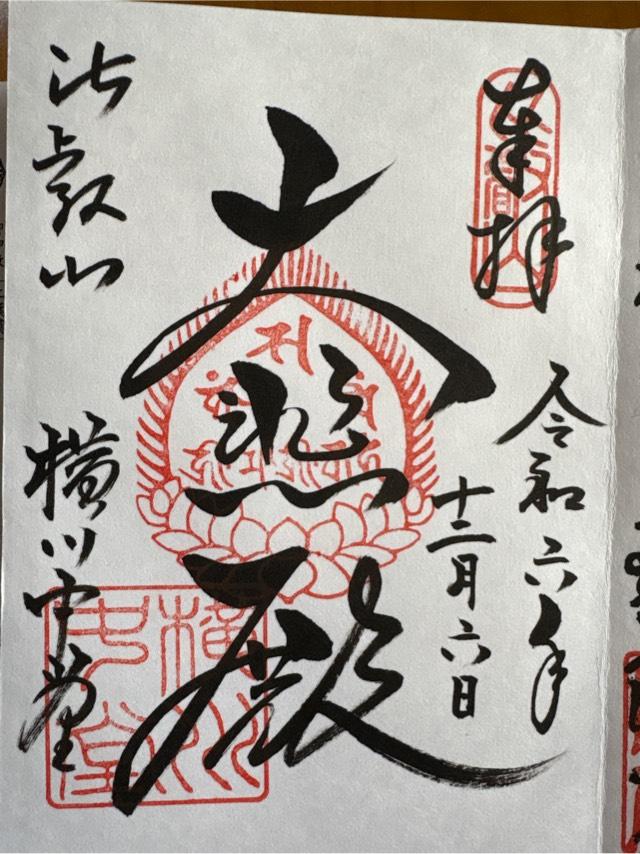 奉拝
令和六年
十二月六日
大悲殿
比叡山
横川中堂
横川
中堂